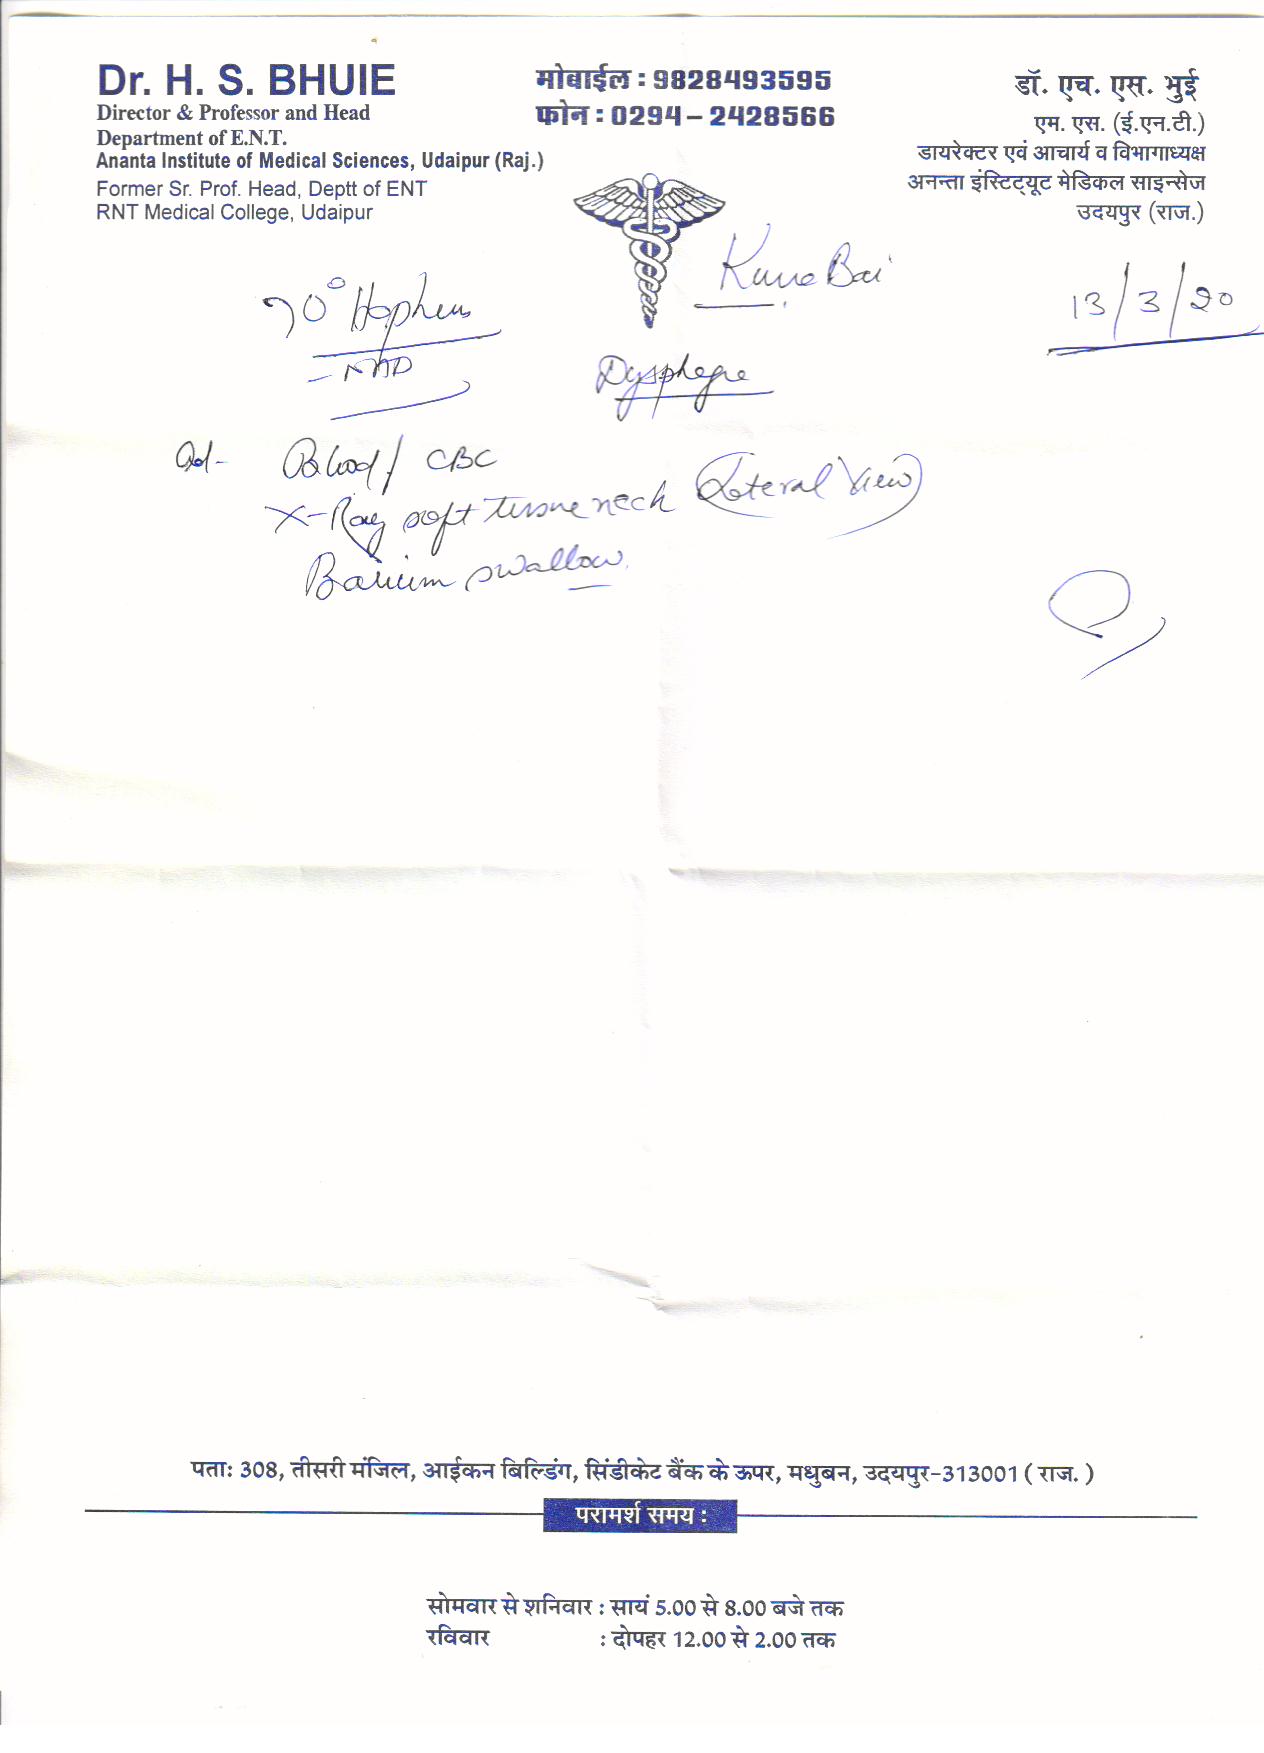 Dr. H. S. BHUIE
Director & Professor and Head
Department of E.N.T.
Ananta Institute of Medical Sciences, Udaipur (Raj.)
Former Sr. Prof. Head, Deptt of ENT
RNT Medical College, Udaipur
मोबाईल : 9828493595
फोन : 0294 – 2428566
डॉ. एच. एस. भुई
एम. एस. (ई.एन.टी.)
डायरेक्टर एवं आचार्य व विभागाध्यक्ष
अनन्ता इंस्टिट्यूट मेडिकल साइन्सेज
उदयपुर (राज.)
Bai
13/3/20
70°
NAD
Blood / CBC
X-Ray soft tissue neck (Lateral View)
Barium swallow.
पता: 308, तीसरी मंजिल, आईकन बिल्डिंग, सिंडीकेट बैंक के ऊपर, मधुबन, उदयपुर-313001 ( राज. )
परामर्श समय :
सोमवार से शनिवार : सायं 5.00 से 8.00 बजे तक
रविवार : दोपहर 12.00 से 2.00 तक